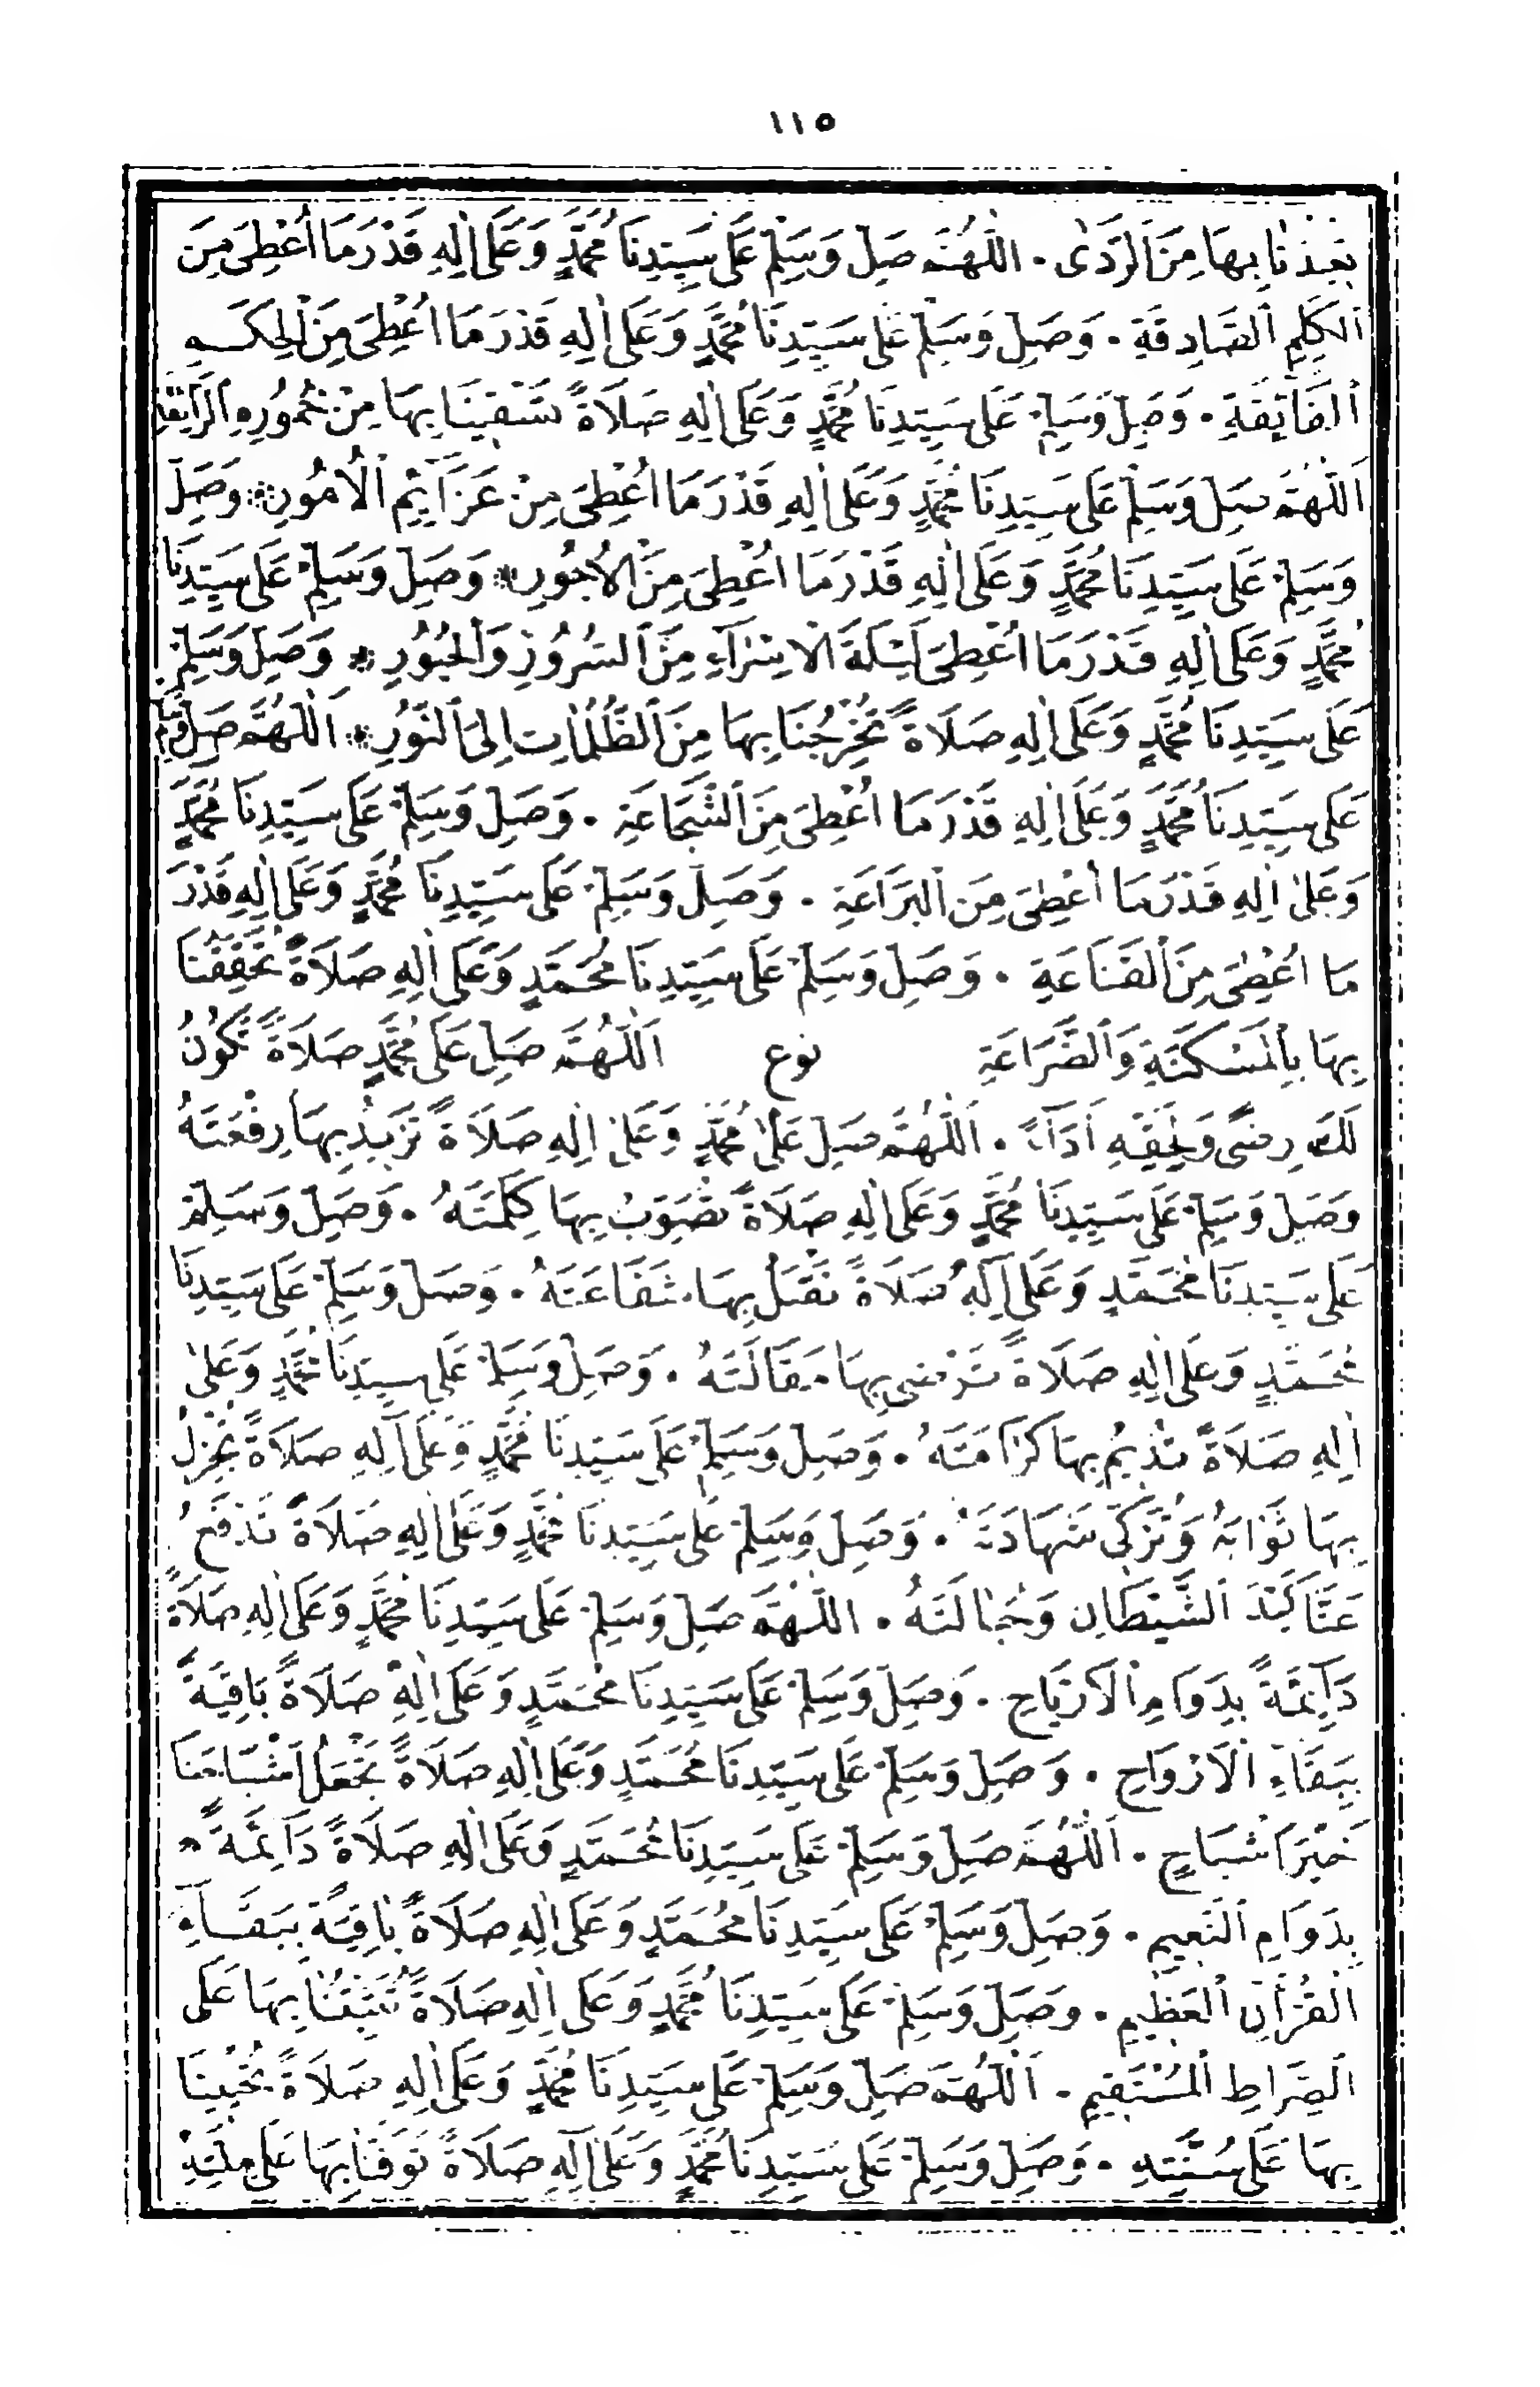 ١١٥
تُعِيذُنَا بِهَا مِنَ الرَّدٰى . اَللّٰهُمَّ صَلِّ وَسَلِّمْ عَلَى سَيِّدِنَا مُحَمَّدٍ وَعَلَى اٰلِهِ قَدْرَ مَا اُعْطِيَ مِنَ
اَلْكَلِمِ الصَّادِقَةِ . وَصَلِّ وَسَلِّمْ عَلَى سَيِّدِنَا مُحَمَّدٍ وَعَلَى اٰلِهِ قَدْرَ مَا اُعْطِيَ مِنَ الْحِكَمِ
الْفَائِقَةِ . وَصَلِّ وَسَلِّمْ عَلَى سَيِّدِنَا مُحَمَّدٍ وَعَلَى اٰلِهِ صَلَاةً تَسْقِينَا بِهَا مِنْ خُمُورِهِ الرَّائِقَةِ
اَللّٰهُمَّ صَلِّ وَسَلِّمْ عَلَى سَيِّدِنَا مُحَمَّدٍ وَعَلَى اٰلِهِ قَدْرَ مَا اُعْطِيَ مِنْ عَزَآئِمِ الْاُمُورِ ۞ وَصَلِّ
وَسَلِّمْ عَلَى سَيِّدِنَا مُحَمَّدٍ وَعَلَى اٰلِهِ قَدْرَ مَا اُعْطِيَ مِنَ الْاُجُورِ ۞ وَصَلِّ وَسَلِّمْ عَلَى سَيِّدِنَا
مُحَمَّدٍ وَعَلَى اٰلِهِ قَدْرَ مَا اُعْطِيَ لَيْلَةَ الْاِسْرَآءِ مِنَ السُّرُورِ وَالْحُبُورِ ۞ وَصَلِّ وَسَلِّمْ
عَلَى سَيِّدِنَا مُحَمَّدٍ وَعَلَى اٰلِهِ صَلَاةً تُخْرِجُنَا بِهَا مِنَ الظُّلُمَاتِ اِلَى النُّورِ ۞ اَللّٰهُمَّ صَلِّ وَسَلِّمْ
عَلَى سَيِّدِنَا مُحَمَّدٍ وَعَلَى اٰلِهِ قَدْرَ مَا اُعْطِيَ مِنَ الشَّجَاعَةِ . وَصَلِّ وَسَلِّمْ عَلَى سَيِّدِنَا مُحَمَّدٍ
وَعَلَى اٰلِهِ قَدْرَ مَا اُعْطِيَ مِنَ الْبَرَاعَةِ . وَصَلِّ وَسَلِّمْ عَلَى سَيِّدِنَا مُحَمَّدٍ وَعَلَى اٰلِهِ قَدْرَ
مَا اُعْطِيَ مِنَ الْقَنَاعَةِ . وَصَلِّ وَسَلِّمْ عَلَى سَيِّدِنَا مُحَمَّدٍ وَعَلَى اٰلِهِ صَلَاةً
بِهَا بِالْمَسْكَنَةِ وَالضَّرَاعَةِ نوع اَللّٰهُمَّ صَلِّ عَلَى مُحَمَّدٍ صَلَاةً تَكُونُ
لَكَ رِضًى وَلِحَقِّهِ اَدَآءً . اَللّٰهُمَّ صَلِّ عَلَى مُحَمَّدٍ وَعَلَى اٰلِهِ صَلَاةً تَزِيدُ بِهَا رِفْعَتَهُ
وَصَلِّ وَسَلِّمْ عَلَى سَيِّدِنَا مُحَمَّدٍ وَعَلَى اٰلِهِ صَلَاةً تُصَوِّبُ بِهَا كَلِمَتَهُ . وَصَلِّ وَسَلِّمْ
عَلَى سَيِّدِنَا مُحَمَّدٍ وَعَلَى اٰلِهِ صَلَاةً تَقْبَلُ بِهَا شَفَاعَتَهُ . وَصَلِّ وَسَلِّمْ عَلَى سَيِّدِنَا
مُحَمَّدٍ وَعَلَى اٰلِهِ صَلَاةً تَرْضَى بِهَا مَقَالَتَهُ . وَصَلِّ وَسَلِّمْ عَلَى سَيِّدِنَا مُحَمَّدٍ وَعَلَى
اٰلِهِ صَلَاةً تُدِيمُ بِهَا كَرَامَتَهُ . وَصَلِّ وَسَلِّمْ عَلَى سَيِّدِنَا مُحَمَّدٍ وَعَلَى اٰلِهِ صَلَاةً تُجْزِلُ
بِهَا ثَوَابَهُ وَتُزَكِّى شَهَادَتَهُ . وَصَلِّ وَسَلِّمْ عَلَى سَيِّدِنَا مُحَمَّدٍ وَعَلَى اٰلِهِ صَلَاةً تَدْفَعُ
عَنَّا كَيْدَ الشَّيْطَانِ وَحِبَالَتَهُ . اَللّٰهُمَّ صَلِّ وَسَلِّمْ عَلَى سَيِّدِنَا مُحَمَّدٍ وَعَلَى اٰلِهِ صَلَاةً
دَآئِمَةً بِدَوَامِ الْاَرْيَاحِ . وَصَلِّ وَسَلِّمْ عَلَى سَيِّدِنَا مُحَمَّدٍ وَعَلَى اٰلِهِ صَلَاةً بَاقِيَةً
بِبَقَاءِ الْاَرْوَاحِ . وَصَلِّ وَسَلِّمْ عَلَى سَيِّدِنَا مُحَمَّدٍ وَعَلَى اٰلِهِ صَلَاةً تَجْعَلُ اَشْبَاحَنَا
خَيْرَ اَشْبَاحٍ . اَللّٰهُمَّ صَلِّ وَسَلِّمْ عَلَى سَيِّدِنَا مُحَمَّدٍ وَعَلَى اٰلِهِ صَلَاةً دَآئِمَةً
بِدَوَامِ النَّعِيمِ . وَصَلِّ وَسَلِّمْ عَلَى سَيِّدِنَا مُحَمَّدٍ وَعَلَى اٰلِهِ صَلَاةً بَاقِيَةً بِبَقَآءِ
الْقُرْاٰنِ الْعَظِيمِ . وَصَلِّ وَسَلِّمْ عَلَى سَيِّدِنَا مُحَمَّدٍ وَعَلَى اٰلِهِ صَلَاةً تُثَبِّتُنَا بِهَا عَلَى
الصِّرَاطِ الْمُسْتَقِيمِ . اَللّٰهُمَّ صَلِّ وَسَلِّمْ عَلَى سَيِّدِنَا مُحَمَّدٍ وَعَلَى اٰلِهِ صَلَاةً تُحْيِينَا
بِهَا عَلَى سُنَّتِهِ . وَصَلِّ وَسَلِّمْ عَلَى سَيِّدِنَا مُحَمَّدٍ وَعَلَى اٰلِهِ صَلَاةً تَوَفَّنَا بِهَا عَلَى مِلَّتِهِ